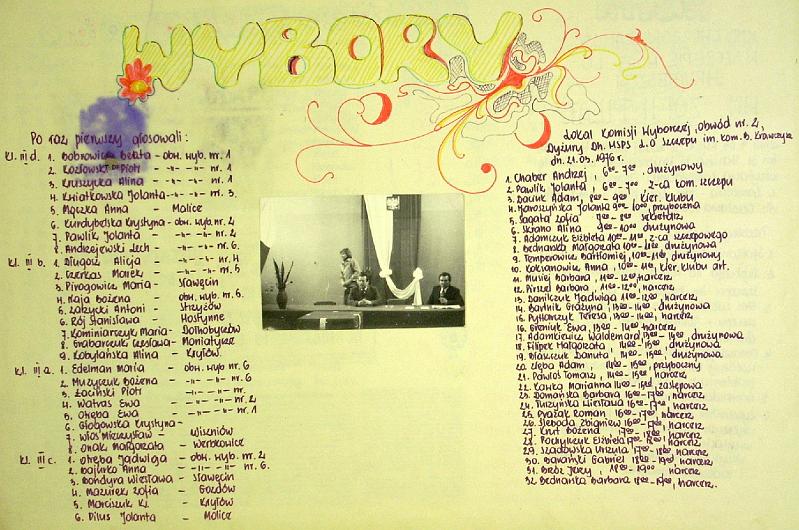 WYBORY
Po raz pierwszy głosowali:
kl. III d. 1. Bobrowicz Beata - obw. wyb. nr. 1
2. Kozłowski Piotr - -"- -"- nr. 1
3. Kruszycka Alina - -"- -"- nr. 1
4. Kwiatkowska Jolanta -"- -"- nr. 3.
5. Mączka Anna - Malice
6. Kurdybelska Krystyna - obw. wyb nr. 2
7. Pawlik Jolanta - -"- -"- nr. 2
8. Andrzejewski Lech - -"- -"- nr. 6.
kl. III b. 1. Długosz Alicja - -"- -"- nr. 4
2. Czerkas Marek - -"- -"- nr. 5
3. Pirogowicz Maria - Sławęcin
4. Kaja Bożena - obw. wyb. nr. 6.
5. Załzycki Antoni - Strzyżów
6. Rój Stanisława - Hostynne
7. Kominiarczyk Maria - Dołhobyczów
8. Grabarczuk Czesława - Moniatycze
9. Kobylańska Alina - Kryłów.
kl. III a. 1. Edelman Maria - obw. wyb nr 6
2. Muzyczuk Bożena - -"- -"- nr. 6
3. Łaciński Piotr - -"- -"- nr.
4. Watras Ewa - -"- -"- nr. 2
5. Oręba Ewa - -"- -"- nr. 1
6. Głogowska Krystyna -
7. Włos Mieczysław - Wiszniów
8. Onak Małgorzata - Werbkowice
kl. III c. 1. Oręba Jadwiga - obw. wyb. nr. 2
2. Bojurko Anna - -"- -"- nr. 6.
3. Bondyra Wiesława - Sławęcin
4. Mazurek Zofia - Gozdów
5. Marciszuk Kr. - Kryłów
6. Pilus Jolanta - Malice
Lokal Komisji Wyborczej, obwód nr. 2,
Dyżury Dh. HSPS i.o szczepu im. kom. B. Krawczyka
dn. 21.03.1976 r.
1. Chaber Andrzej, 6⁰⁰-7⁰⁰ drużynowy
2. Pawlik Jolanta, 6⁰⁰-7⁰⁰ z-ca kom. szczepu
3. Daciuk Adam, 8⁰⁰-9⁰⁰, kier. klubu
4. Haroszyńska Jolanta 9⁰⁰-10⁰⁰ przyboczna
5. Sagata Zofia 7⁰⁰-8⁰⁰ sekretarz
6. Skrano Alina 9⁰⁰-10⁰⁰ drużynowa
7. Adamczyk Elżbieta 10⁰⁰-11⁰⁰, z-ca szczepowego
8. Bednarska Małgorzata 10⁰⁰-11⁰⁰ drużynowa
9. Temperowicz Bartłomiej, 10⁰⁰-11⁰⁰ drużynowy
10. Kokianowic Anna, 10⁰⁰-11⁰⁰, kier. klubu art.
11. Musiej Barbara, 11⁰⁰-12⁰⁰ harcerz
12. Pirszel Barbara, 11⁰⁰-12⁰⁰, harcerz
13. Daniłczuk Jadwiga 11⁰⁰-12⁰⁰, harcerz
14. Batnik Grażyna, 13⁰⁰-14⁰⁰, drużynowa
15. Pyłkarczyk Teresa, 13⁰⁰-14⁰⁰, harcerz
16. Greniuk Ewa, 13⁰⁰-14⁰⁰ harcerz
17. Adamkiewicz Waldemar, drużynowy
18. Filipek Małgorzata, 14⁰⁰-15⁰⁰, drużynowa
19. Błaszczuk Danuta, 14⁰⁰-15⁰⁰, drużynowa
20. Zięba Adam, 14⁰⁰-15⁰⁰, przyboczny
21. Pawlos Tomasz, 14⁰⁰-15⁰⁰, harcerz
22. Kawka Marianna zastępowa
23. Domańska Barbara 16⁰⁰-17⁰⁰, harcerz
24. Turzyńska Wiesława 16⁰⁰-17⁰⁰, harcerz
25. Prażak Roman, 16⁰⁰-17⁰⁰, harcerz
26. Słoboda Zbigniew 16⁰⁰-17⁰⁰, harcerz
27. Knut Bożena 17⁰⁰-18⁰⁰, harcerz
28. Pochyłczuk Elżbieta 17⁰⁰-18⁰⁰, harcerz
29. Szadowska Urszula 17⁰⁰-18⁰⁰ harcerz
30. Barański Gabriel 18⁰⁰-19⁰⁰ harcerz
31. Bróż Jerzy, 18⁰⁰-19⁰⁰ harcerz
32. Bednarska Barbara 18⁰⁰-19⁰⁰, harcerz.